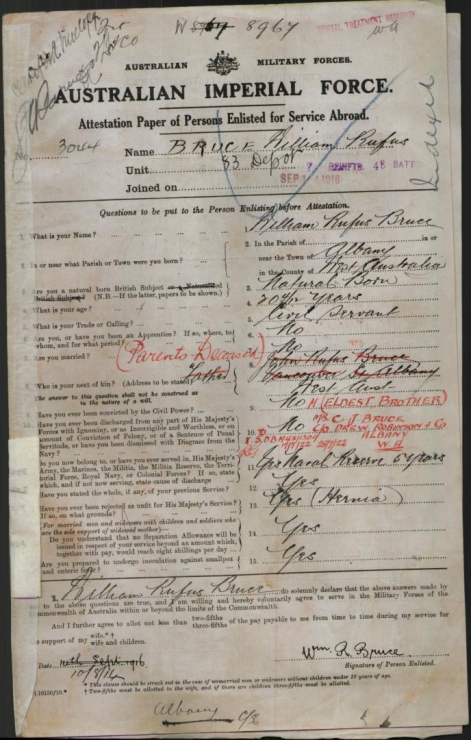 W 8967 8967
DENTAL TREATMENT REQUIRED
AUSTRALIAN MILITARY FORCES.
AUSTRALIAN IMPERIAL FORCE.
Attestation Paper of Persons Enlisted for Service Abroad.
No. 3044 Name BRUCE William Rufus
Unit 83 Depot 7 REINFTS 48 BATTN.
Joined on SEP 1916
Indexed
Questions to be put to the Person Enlisting before Attestation.
What is your Name? William Rufus Bruce
In or near what Parish or Town were you born? 2. In the Parish of Albany in or
near the Town of
in the County of West Australia
Are you a natural born British Subject or a Naturalized British Subject? (N.B.—If the latter, papers to be shown.) 3. Natural Born
What is your age? 4. years
What is your Trade or Calling? 5. Civil Servant
Are you, or have you been an Apprentice? If so, where, to whom, and for what period? 6. No
Are you married? 7. No
(Parents Deceased)
Who is your next of kin? (Address to be stated) Father 8. John Rufus Bruce
Vancouver St Albany
West Aust
The answer to this question shall not be construed as in the nature of a will.
Have you ever been convicted by the Civil Power? 9. No
(ELDEST BROTHER)
MR C. J BRUCE
C/o DREW, ROBINSON & Co
ALBANY
W.A
Have you ever been discharged from any part of His Majesty's Forces with Ignominy, or as Incorrigible and Worthless, or on account of Conviction of Felony, or of a Sentence of Penal Servitude, or have you been Dismissed with Disgrace from the Navy? 10.
Do you now belong to, or have you ever served in, His Majesty's Army, the Marines, the Militia, the Militia Reserve, the Territorial Force, Royal Navy, or Colonial Forces? If so, state which, and if not now serving, state cause of discharge 11. Yes Naval Reserve 5 years
Have you stated the whole, if any, of your previous Service? 12. Yes
Have you ever been rejected as unfit for His Majesty's Service? If so, on what grounds? 13. Yes (Hernia)
(For married men and widowers with children and soldiers who are the sole support of widowed mother)—
Do you understand that no Separation Allowance will be issued in respect of your service beyond an amount which, together with pay, would reach eight shillings per day 14. Yes
Are you prepared to undergo inoculation against smallpox and enteric fever? 15. Yes
I, William Rufus Bruce do solemnly declare that the above answers made by
to the above questions are true, and I am willing and hereby voluntarily agree to serve in the Military Forces of the
Commonwealth of Australia within or beyond the limits of the Commonwealth.
And I further agree to allot not less than two-fifths three-fifths of the pay payable to me from time to time during my service for
support of my wife.*†
wife and children.
Date Sept 1916
Wm. R. Bruce
Signature of Person Enlisted.
* This clause should be struck out in the case of unmarried men or widowers without children under 18 years of age.
† Two-fifths must be allotted to the wife, and if there are children three-fifths must be allotted.
Albany